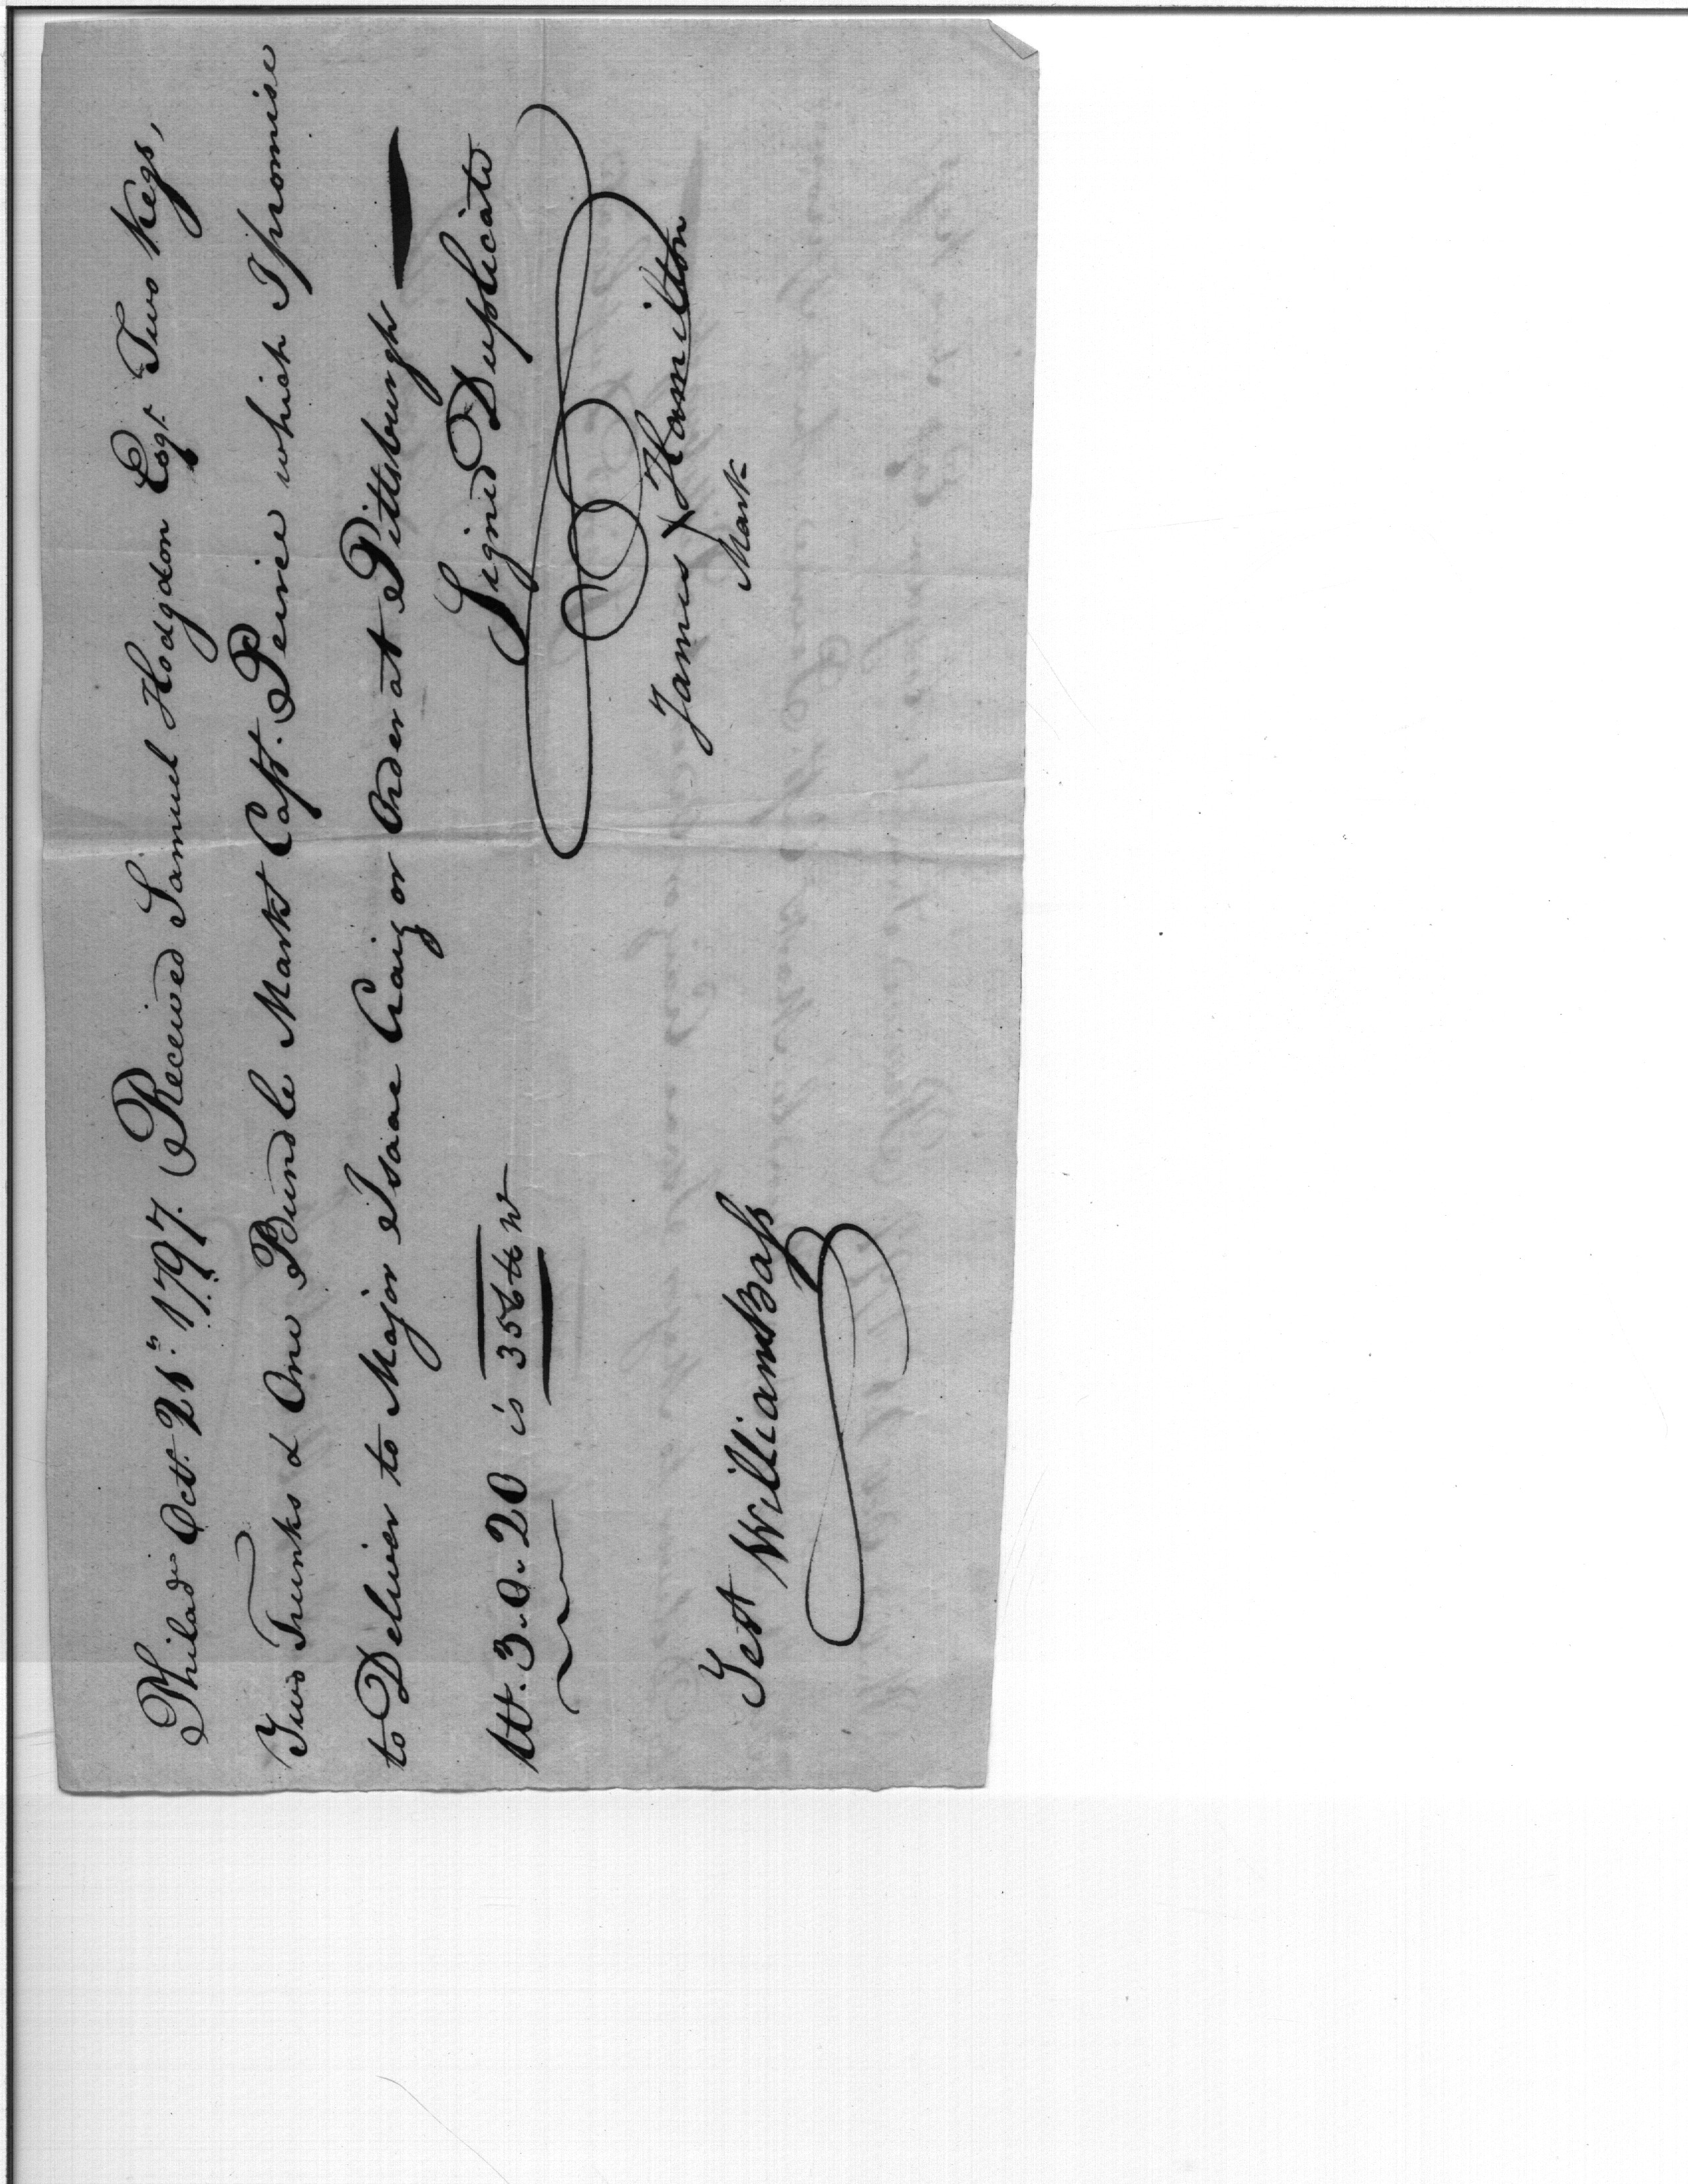 Philad^a Oct. 21^st. 1797. Received Samuel Hodgdon Esq^r. Two Kegs,
Two Trunks & One Bundle Markt Capt. Peirce which I promise
to Deliver to Major Isaac Craig or Order at Pittsburgh
Signed Duplicate
Wt. 3.0.20 is 356 lb N
James X Hamilton
Mark
Test William Bass